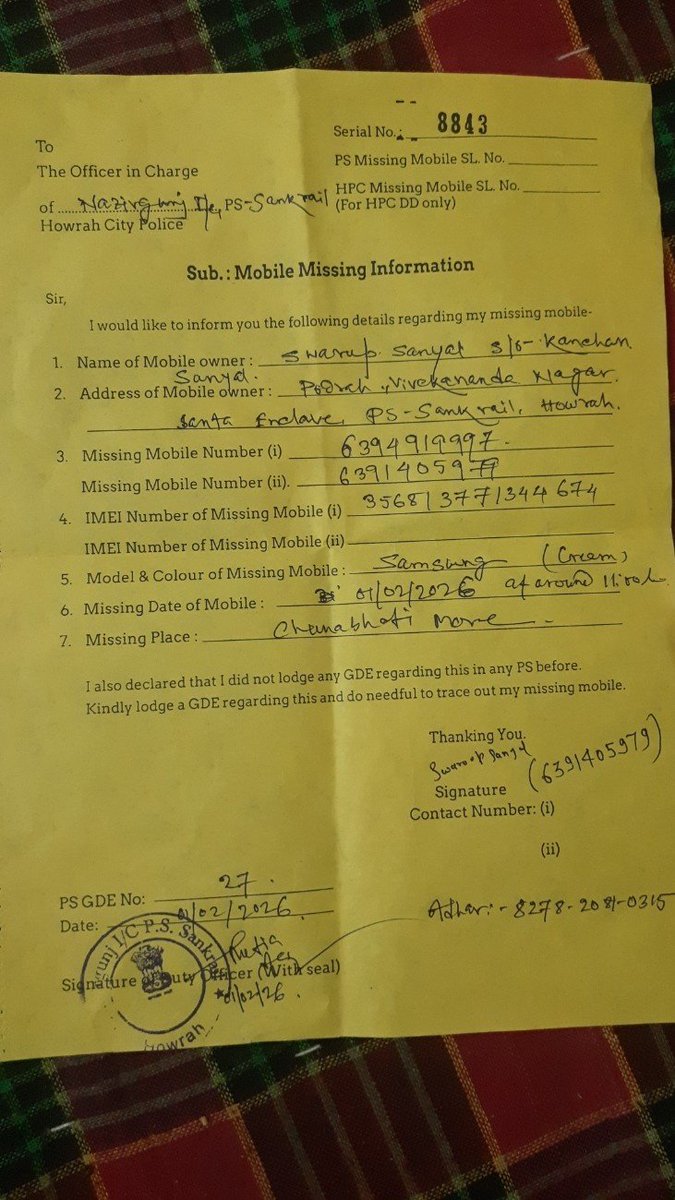 Serial No.: 8843
To
The Officer in Charge
PS Missing Mobile SL. No.
of Nazirgunj I/c, PS-Sankrail
HPC Missing Mobile SL. No.
(For HPC DD only)
Howrah City Police
Sub.: Mobile Missing Information
Sir,
I would like to inform you the following details regarding my missing mobile-
1. Name of Mobile owner : Swarup Sanyal S/o- Kanchan
Sanyal.
2. Address of Mobile owner : Podrah, Vivekananda Nagar
Santa Enclave, PS-Sankrail, Howrah.
3. Missing Mobile Number (i) 6394919997.
Missing Mobile Number (ii). 6391405979
4. IMEI Number of Missing Mobile (i) 356813771344674
IMEI Number of Missing Mobile (ii)
5. Model & Colour of Missing Mobile : Samsung (Cream)
6. Missing Date of Mobile : 01/02/2026 at around
7. Missing Place : Chunabhati More
I also declared that I did not lodge any GDE regarding this in any PS before.
Kindly lodge a GDE regarding this and do needful to trace out my missing mobile.
Thanking You.
Swaroop Sanyal (6391405979)
Signature
Contact Number: (i)
(ii)
PS GDE No: 27.
Date: 01/02/2026.
Adhar:- 8278-2081-0315
Signature of Duty Officer (With seal)
01/02/26.
gunj I/C P.S. Sankrail
Howrah